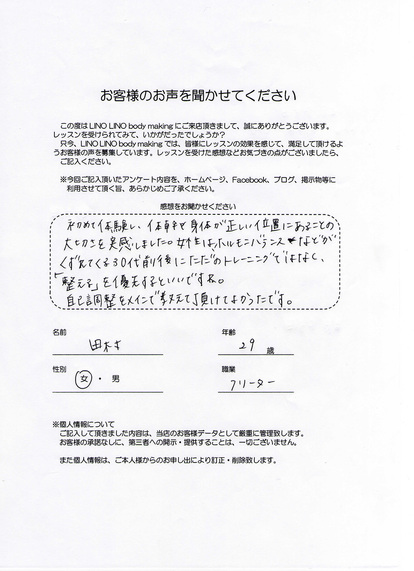 お客様のお声を聞かせてください
この度はLINO LINO body makingにご来店頂きまして、誠にありがとうございます。
レッスンを受けられてみて、いかがだったでしょうか？
只今、LINO LINO body makingでは、皆様にレッスンの効果を感じて、満足して頂けるよ
うお客様の声を募集しています。レッスンを受けた感想などお気づきの点がございましたら、
ご記入ください。
※今回ご記入頂いたアンケート内容を、ホームページ、Facebook、ブログ、掲示物等に
利用させて頂く旨、あらかじめご了承ください。
感想をお聞かせください
初めて体験し、体幹や身体が正しい位置にあることの
大切さを実感しました。女性はホルモンバランスなどが
くずれてくる30代前後にただのトレーニングではなく、
「整える」を優先するといいですね。
自己調整をメインで教えて頂けてよかったです。
名前
年齢
田村
29 歳
性別
職業
女 ・ 男
フリーター
※個人情報について
ご記入して頂きました内容は、当店のお客様データとして厳重に管理致します。
お客様の承諾なしに、第三者への開示・提供することは、一切ございません。
また個人情報は、ご本人様からのお申し出により訂正・削除致します。